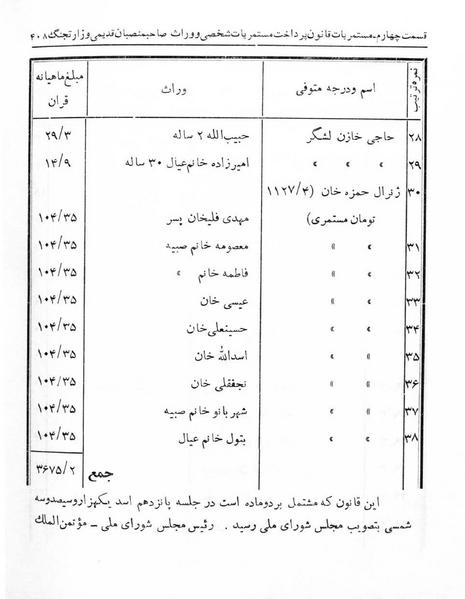 قسمت چهارم ـ مستمریات قانون پرداخت مستمریات شخصی و وراث صاحبمنصبان قدیمی وزارتجنگ ۴۰۸
نمره ترتیب اسم ودرجه متوفی وراث مبلغ ماهیانه قران
۲۸ حاجی خازن لشگر حبیب‌الله ۲ ساله ۲۹/۳
۲۹ » » » امیرزاده خانم عیال ۳۰ ساله ۱۴/۹
۳۰ ژنرال حمزه خان (۱۱۲۷/۴
تومان مستمری) مهدی قلیخان پسر ۱۰۴/۳۵
۳۱ » » معصومه خانم صبیه ۱۰۴/۳۵
۳۲ » » فاطمه خانم » ۱۰۴/۳۵
۳۳ » » عیسی خان ۱۰۴/۳۵
۳۴ » » حسینعلی خان ۱۰۴/۳۵
۳۵ » » اسدالله خان ۱۰۴/۳۵
۳۶ » » نجفقلی خان ۱۰۴/۳۵
۳۷ » » شهربانو خانم صبیه ۱۰۴/۳۵
۳۸ » » بتول خانم عیال ۱۰۴/۳۵
جمع ۳۶۷۵/۲
این قانون که مشتمل بردوماده است در جلسه پانزدهم اسد یکهزاروسیصدوسه
شمسی بتصویب مجلس شورای ملی رسید . رئیس مجلس شورای ملی ـ مؤتمن الملک